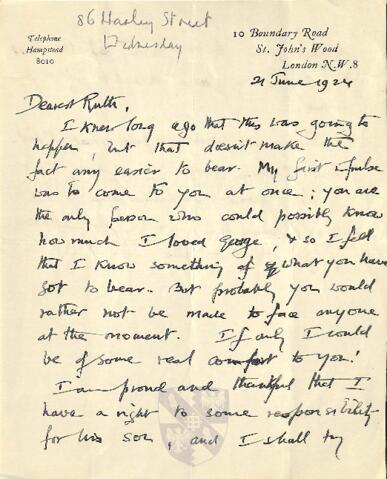 86 Harley Street
Wednesday
Telephone
Hampstead
8010
10 Boundary Road
St. John's Wood
London N.W.8
21 June 1924
Dearest Ruth,
I knew long ago that this was going to
happen, but that doesn't make the
fact any easier to bear. My first impulse
was to come to you at once; you are
the only person who could possibly know
how much I loved George, & so I feel
that I know something of what you have
got to bear. But probably you would
rather not be made to face anyone
at the moment. If only I could
be of some real comfort to you!
I am proud and thankful that I
have a right to some responsibility
for his son, and I shall try